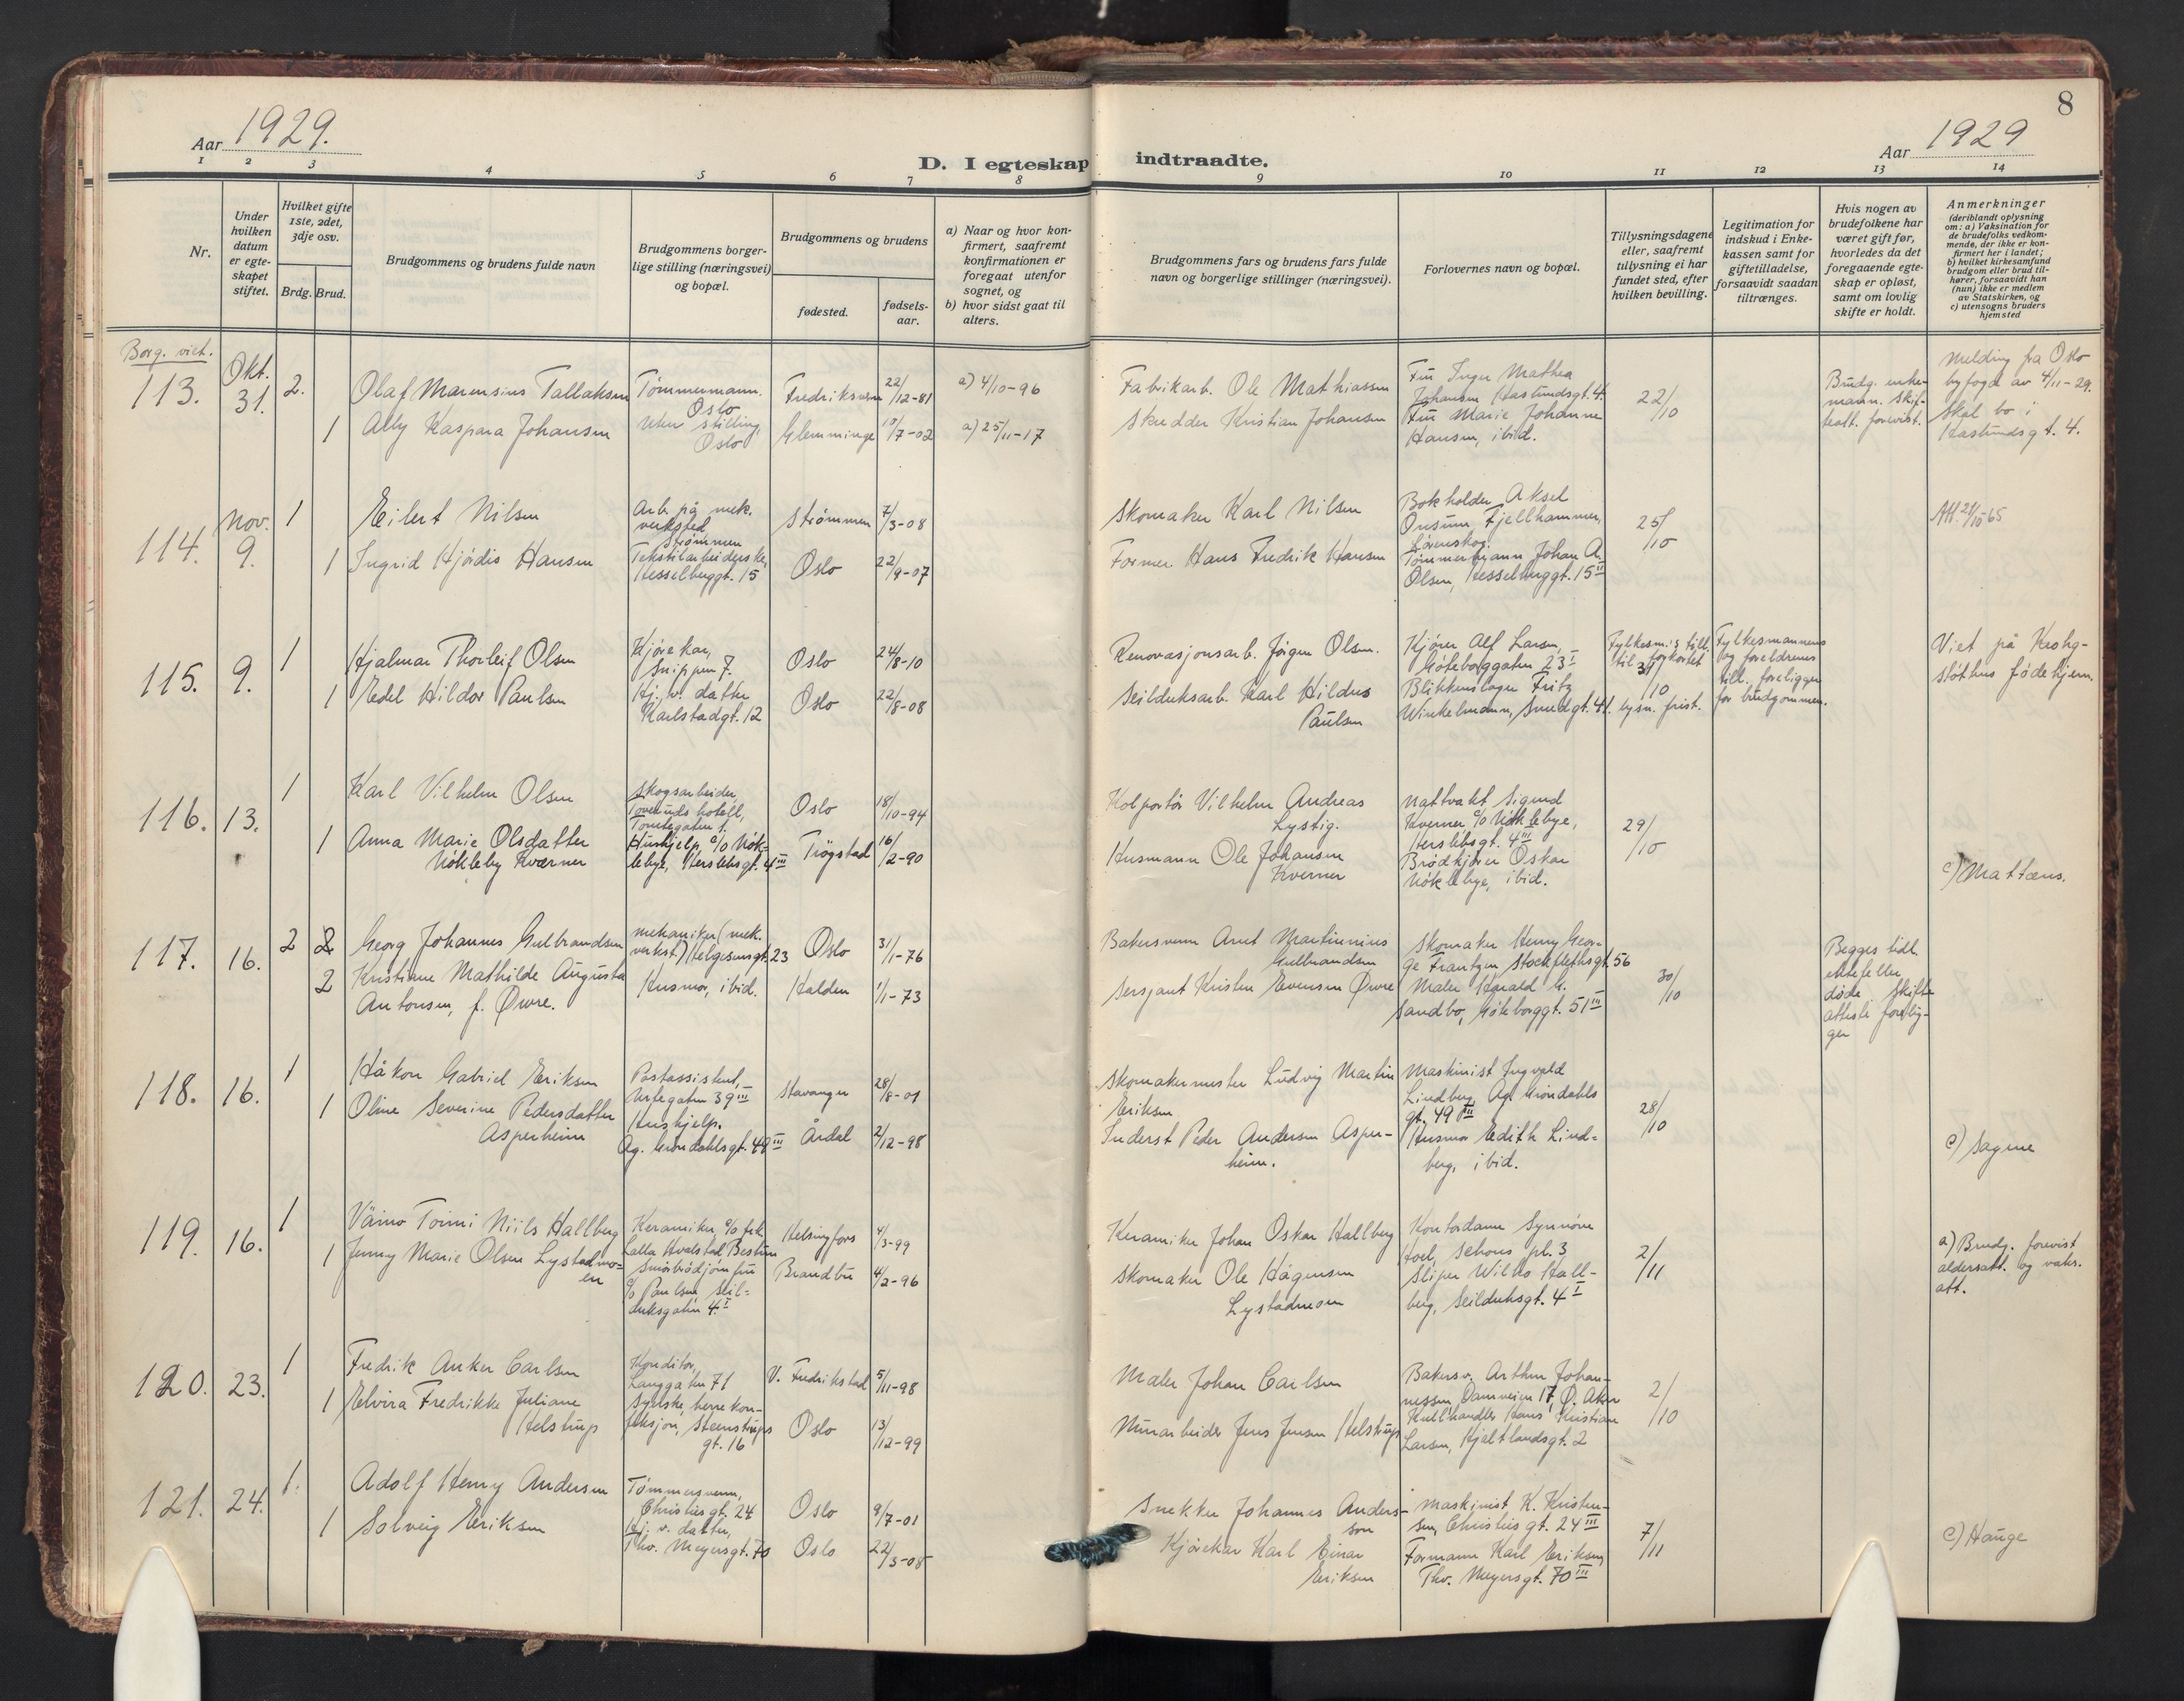 8
Aar 1929.
D. I egteskap indtraadte.
Aar 1929
1 2 3 4 5 6 7 8 9 10 11 12 13 14
Nr.
Under hvilken datum er egteskapet stiftet.
Hvilket gifte 1ste, 2det, 3dje osv.
Brdg. Brud.
Brudgommens og brudens fulde navn
Brudgommens borgerlige stilling (næringsvei) og bopæl.
Brudgommens og brudens
fødested.
fødselsaar.
a) Naar og hvor konfirmert, saafremt konfirmationen er foregaat utenfor sognet, og
b) hvor sidst gaat til alters.
Brudgommens fars og brudens fars fulde navn og borgerlige stillinger (næringsvei).
Forlovernes navn og bopæl.
Tillysningsdagene eller, saafremt tillysning ei har fundet sted, efter hvilken bevilling.
Legitimation for indskud i Enkekassen samt for giftetilladelse, forsaavidt saadan tiltrænges.
Hvis nogen av brudefolkene har været gift før, hvorledes da det foregaaende egteskap er opløst, samt om lovlig skifte er holdt.
Anmerkninger (deriblandt oplysning om: a) Vaksination for de brudefolks vedkommende, der ikke er konfirmert her i landet; b) hvilket kirkesamfund brudgom eller brud tilhører, forsaavidt han (hun) ikke er medlem av Statskirken, og c) utensogns bruders hjemsted
Borg. viet.
113. Okt. 31. 2. Olaf Marensius Tallaksen
Tømmermann. Oslo
Fredriksværn 22/12-81 a) 4/10-96
Fabrikarb. Ole Mathiassen
Fru Inger Mathea
Johansen Hastundsgt. 4.
22/10
Budg. enke-
mann. Skif-
teatt. forevist.
Melding fra Oslo
byfogd av 4/11-29.
Skal bo i
Hastundsgt. 4.
1 Ally Kaspara Johansen
Uten stilling, Oslo
Glemminge 10/7-02 a) 25/11-17
Skredder Kristian Johansen
Fru Marie Johanne
Hansen, ibid.
114. Nov. 9. 1 Eilert Nilsen
Arb. på mek.
verksted
Strømmen
Strømmen 7/3-08
Skomaker Karl Nilsen
Bokholder Aksel
Onsum, Fjellhammer,
Lørenskog.
25/10
1 Ingrid Hjördis Hansen
Tekstilarbeiderske,
Hesselberggt. 15
Oslo 22/9-07
Former Hans Fredrik Hansen
Tømmermann Johan A.
Olsen, Hesselberggt. 15 II
115. 9. 1 Hjalmar Thorleif Olsen
Kjørekar,
Snippen 7.
Oslo 24/8-10
Renovasjonsarb. Jörgen Olsen.
Kjører Alf Larsen,
Göteborggaten 23 I
Fylkesm.'s till.
til forkortet
31/10
lysn. frist.
Fylkesmannens
og foreldrenes
till. foreligger
for brudgommen.
Viet på Krohg-
støtens fødehjem.
1 Edel Hildor Paulsen
Hj. v. datter
Karlstadgt. 12
Oslo 22/8-08
Seilduksarb. Karl Hildus
Paulsen
Blikkenslager Fritz
Winkelmann, Smedgt. 41.
116. 13. 1 Karl Vilhelm Olsen
Skogsarbeider,
hotell,
Tomtegaten 1.
Oslo 18/10-94
Kolportör Vilhelm Andreas
Lystig.
Nattvakt Sigurd
Kverner c/o Nøklebye,
Herslebsgt. 4 III
29/10
1 Anna Marie Olsdatter
Nökleby Kverner
Hushjelp, c/o Nøk-
lebye, Herslebsgt. 4 III
Trögstad 16/2-90
Husmann Ole Johansen
Kverner
Brødkjører Oskar
Nøklebye, ibid.
c) Mattæus.
117. 16. 2 2 Georg Johannes Gulbrandsen
mekaniker (mek.
verkst.) Helgesensgt. 23
Oslo 31/1-76
Bakersvenn Arnt Martinnius
Gulbrandsen
Skomaker Henry Geor-
ge Frantzen Stockflethsgt. 56
30/10
Begges tidl.
ektefeller
døde. Skifte
atteste forelig-
ger
2 Kristiane Mathilde Augusta
Antonsen, f. Øvre.
Husmor, ibid.
Halden 1/1-73
Sersjant Kristen Evensen Øvre
Maler Harald G.
Sandbo, Göteborggt. 51 III
118. 16. 1 Håkon Gabriel Eriksen
Postassistent,
Urtegaten 39 III
Stavanger 28/8-01
Skomakermester Ludvig Martin
Eriksen
Maskinist Ingvald
Lindberg Ag. Gröndahls
gt. 49 III
28/10
1 Oline Severine Pedersdatter
Asperheim
Hushjelp.
Ag. Gröndahlsgt. 49 III
Årdal 2/12-98
Inderst Peder Andersen Asper-
heim.
Husmor Edith Lind-
berg, ibid.
c) Sagene
119. 16. 1 Väinö Toimi Niils Hallberg
Keramiker, c/o frk.
Lalla Hvalstad Bestum
Helsingfors 4/3-99
Keramiker Johan Oskar Hallberg
Kontordame Synnöve
Hoel, Schous pl. 3
2/11
a) Brudg. forevist
aldersatt. og vaks.
att.
1 Jenny Marie Olsen Lystadmo-
en
Smörbrödjomfru
c/o Paulsen Seil-
duksgaten 4 I
Brandbu 4/2-96
Skomaker Ole Hågensen
Lystadmoen
Sliper Wilho Hall-
berg, Seilduksgt. 4 I
120. 23. 1 Fredrik Anker Carlsen
Konditor,
Langgaten 71
V. Fredrikstad 5/11-98
Maler Johan Carlsen
Bakersv. Arthur Johan-
nessen, Damveien 17, Ø. Aker
2/10
1 Elvira Fredrikke Juliane
Helstrup
Syerske, herrekon-
feksjon, Steenstrups
gt. 16
Oslo 13/12-99
Murarbeider Jens Jensen Helstrup
Kullhandler Hans Kristian
Larsen, Hjaltlandsgt. 2
121. 24. 1. Adolf Henry Andersen
Tømmersvenn,
Christiesgt. 24
Oslo 9/7-01
Snekker Johannes Anders-
son
Maskinist K. Kristen-
sen, Christiesgt. 24 III
7/11
1 Solveig Eriksen
Hj. v. datter,
Thv. Meyersgt. 70
Oslo 22/3-08
Kjørekar Karl Einar
Eriksen
Formann Karl Eriksen,
Thv. Meyersgt. 70 III
c) Hauge